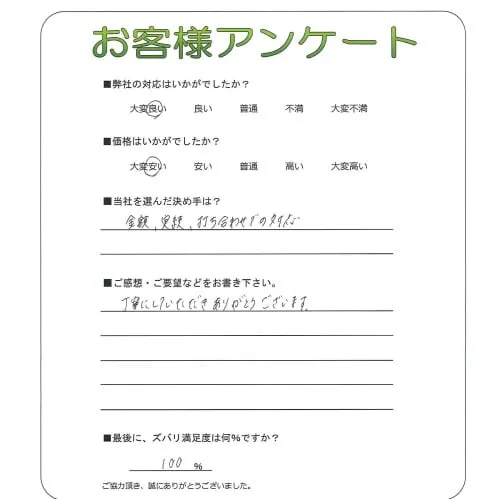 お客様アンケート
■弊社の対応はいかがでしたか？
大変良い 良い 普通 不満 大変不満
■価格はいかがでしたか？
大変安い 安い 普通 高い 大変高い
■当社を選んだ決め手は？
金額、実績、打ち合わせでの
■ご感想・ご要望などをお書き下さい。
丁寧にしていただきありがとうございます。
■最後に、ズバリ満足度は何%ですか？
100 %
ご協力頂き、誠にありがとうございました。